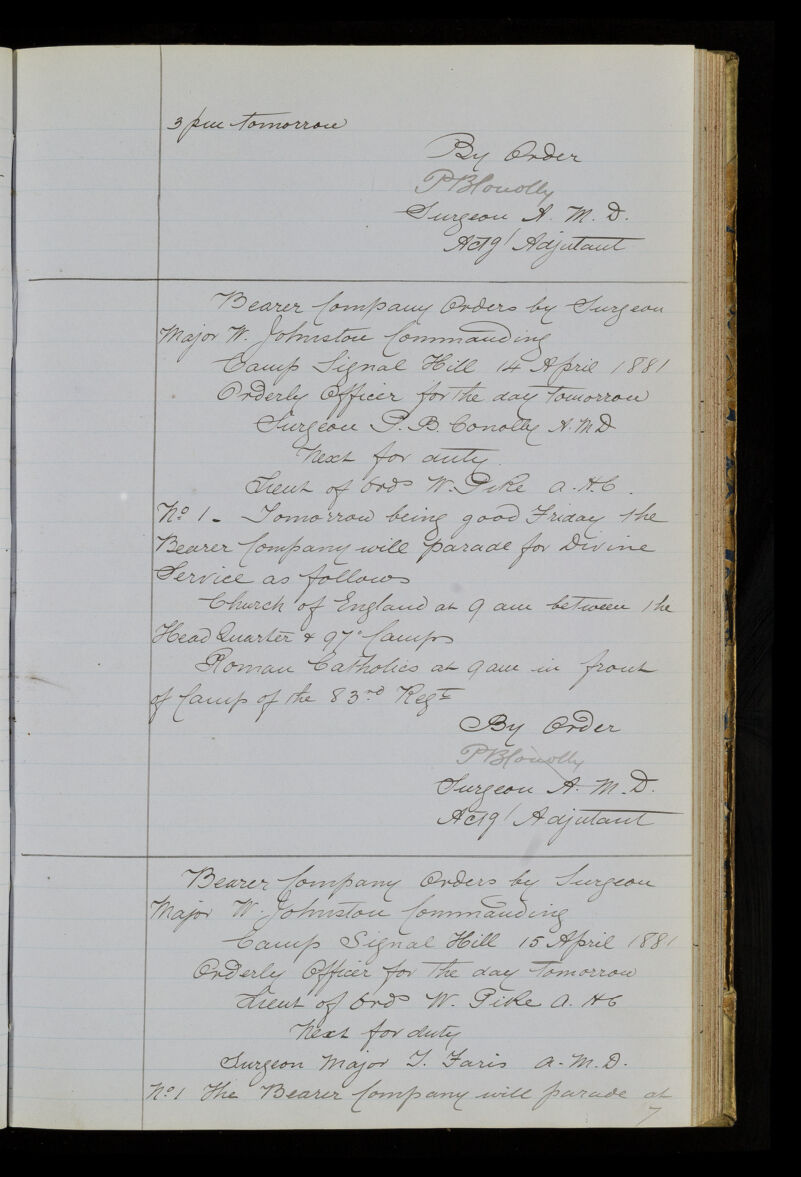 3 pm tomorrow
By Order
PBConolly
Surgeon A. M. D.
Actg Adjutant
Bearer Company Orders by Surgeon
Major W. Johnston Commanding
Camp Signal Hill 14 April 1881
Orderly Officer for the day tomorrow
Surgeon P. B. Conolly A. M. D
Next for duty.
Lieut of Ords W. Pike A. H. C.
No 1 - Tomorrow being good Friday the
Bearer Company will parade for Divine
Service as follows
Church of England at 9 am between the
Head Quarter & 97º Camps
Roman Catholics at 9 am in front
of Camp of the 83rd Regt
By Order
PBConolly
Surgeon A. M. D.
Actg Adjutant
Bearer Company Orders by Surgeon
Major W. Johnston Commanding
Camp Signal Hill 15 April 1881
Orderly Officer for the day tomorrow
Lieut of Ords W. Pike A. H C
Next for duty
Surgeon Major T. Faris A. M. D.
No 1 The Bearer Company will parade at
7